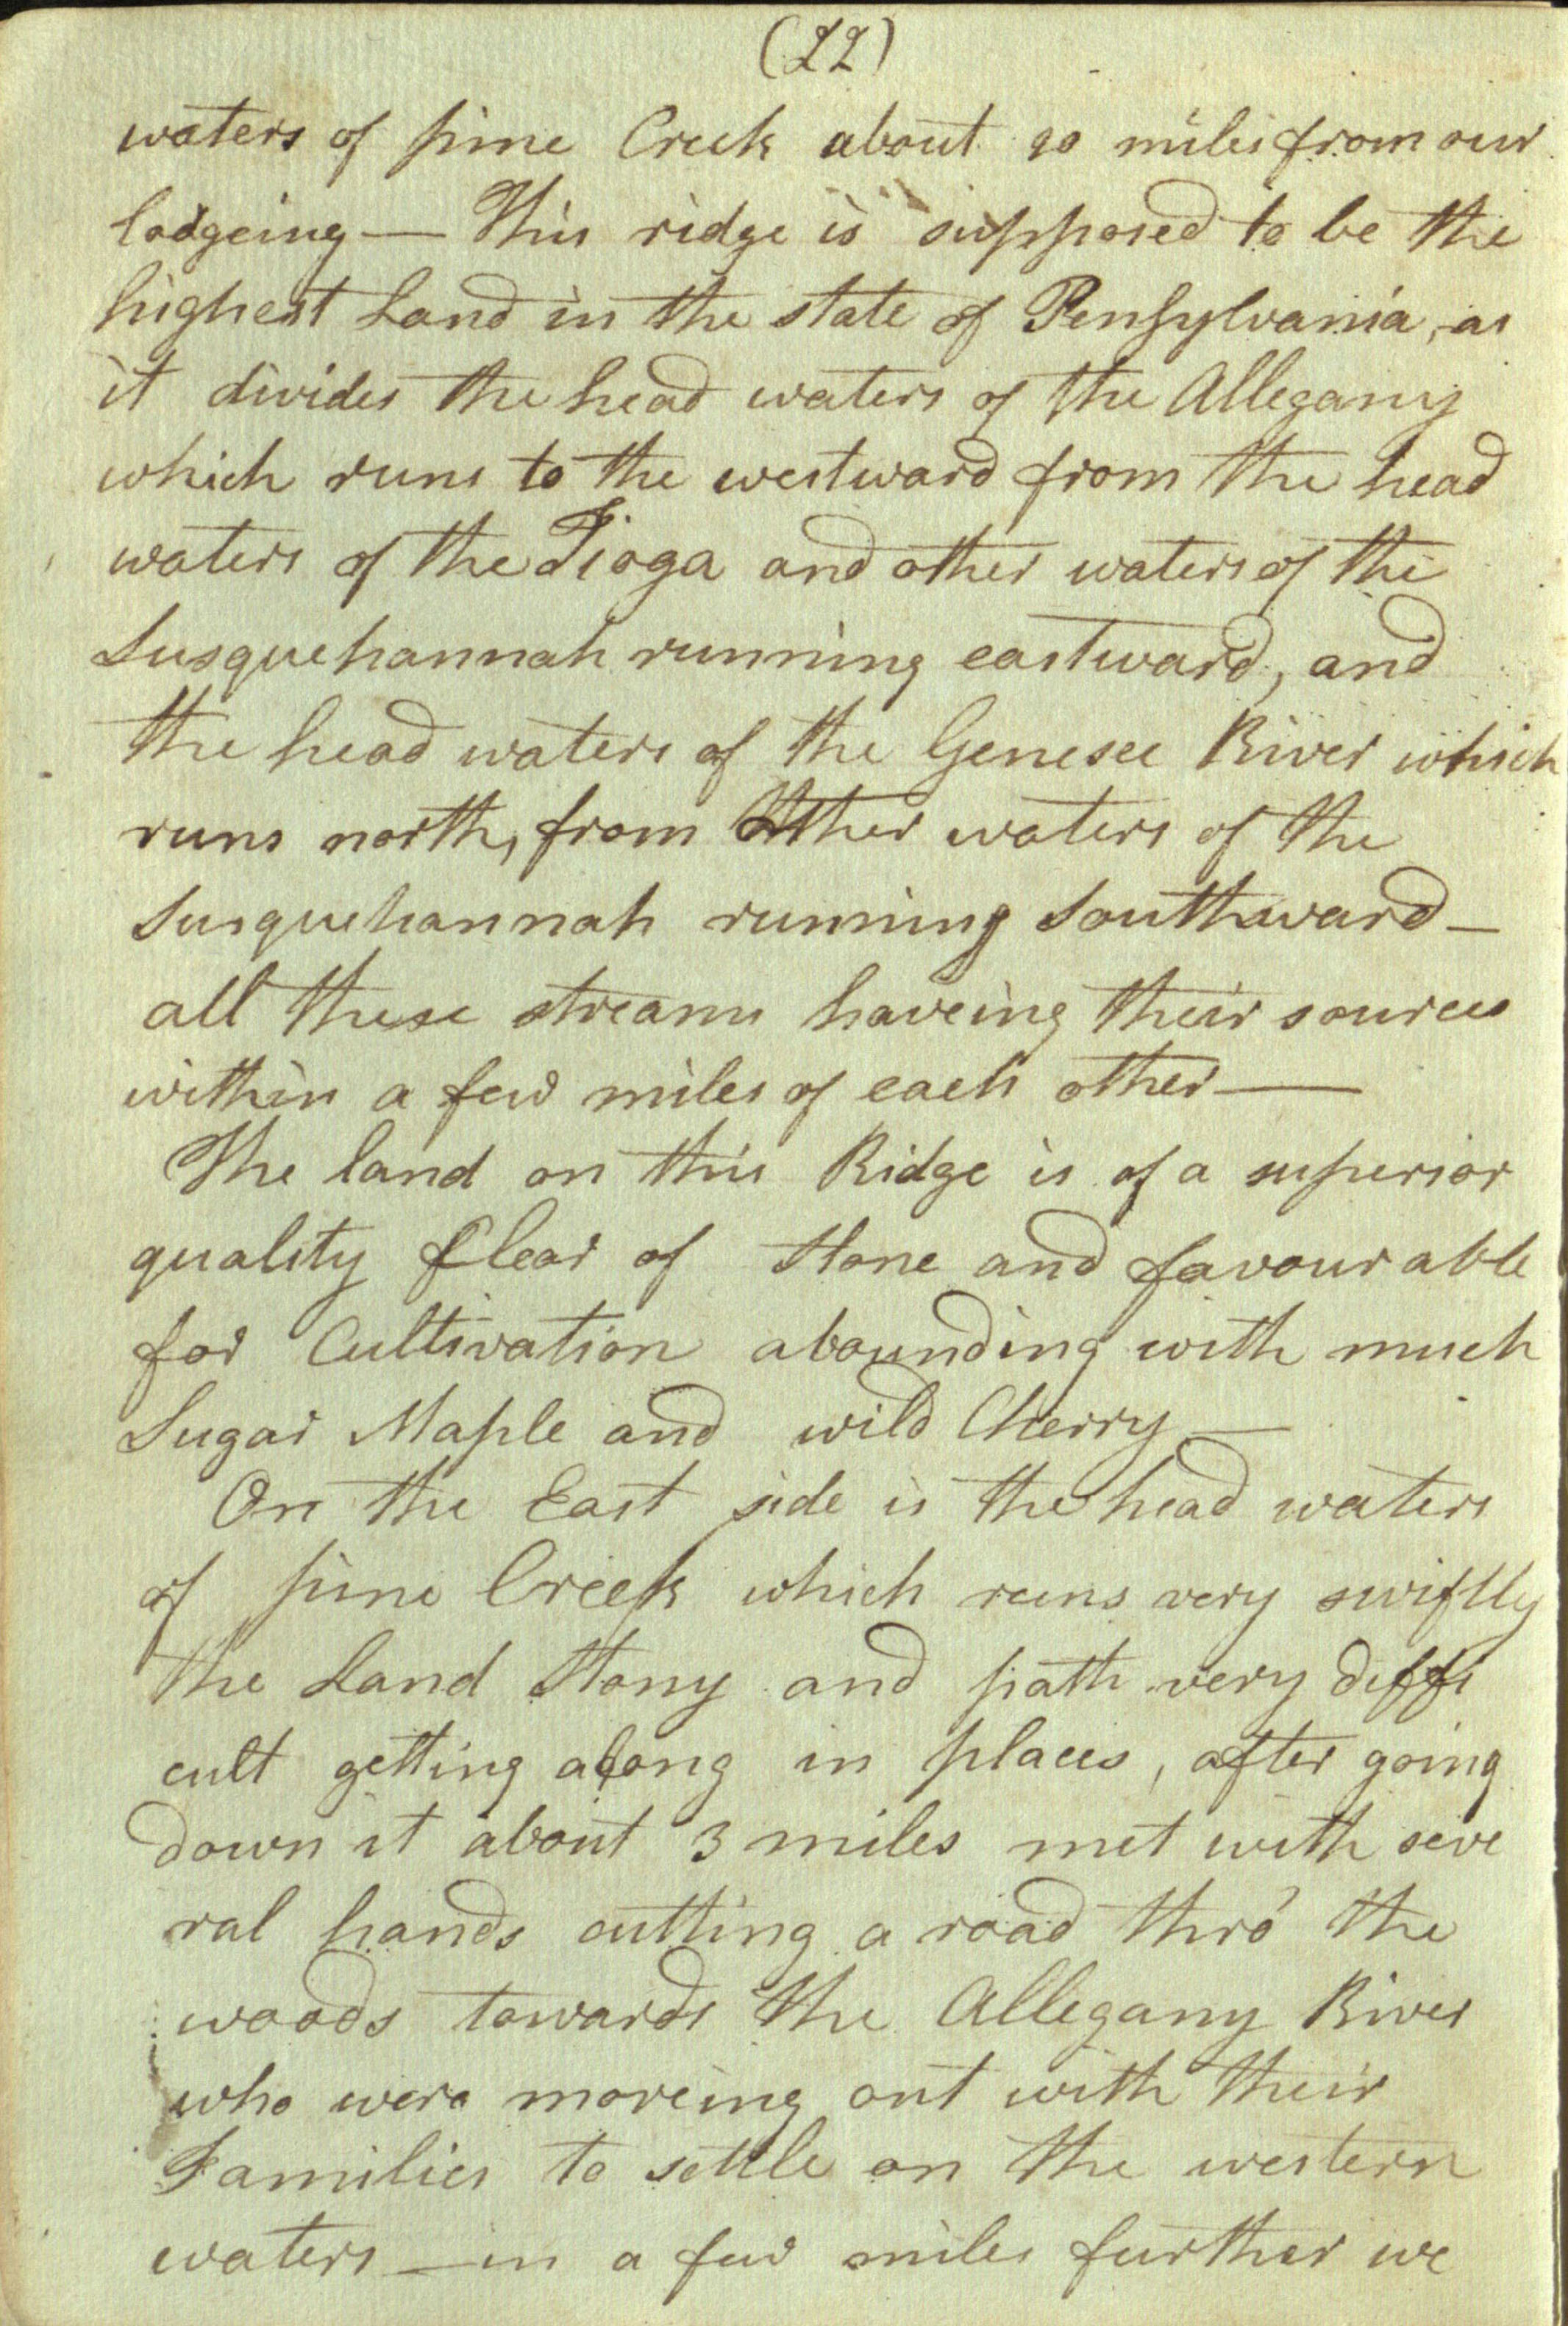 (22)
waters of pine Creek about 20 miles from our
lodgeing — This ridge is supposed to be the
highest Land in the state of Pensylvania, as
it divides the head waters of the Allegany
which runs to the westward from the head
waters of the Tioga and other waters of the
Susquehannah running eastward, and
the head waters of the Genesee River which
runs north, from Other waters of the
Susquehannah running Southward —
all these streams haveing their sources
within a few miles of each other —
The land on this Ridge is of a superior
quality Clear of Stone and favourable
for Cultivation abounding with much
Sugar Maple and wild Cherry —
On the East side is the head waters
of pine Creek which runs very swiftly
the Land Stony and path very diffi
cult getting along in places, after going
down it about 3 miles met with seve
ral hands cutting a road thro' the
woods towards the Allegany River
who were moveing out with their
Families to settle on the western
waters — in a few miles further we